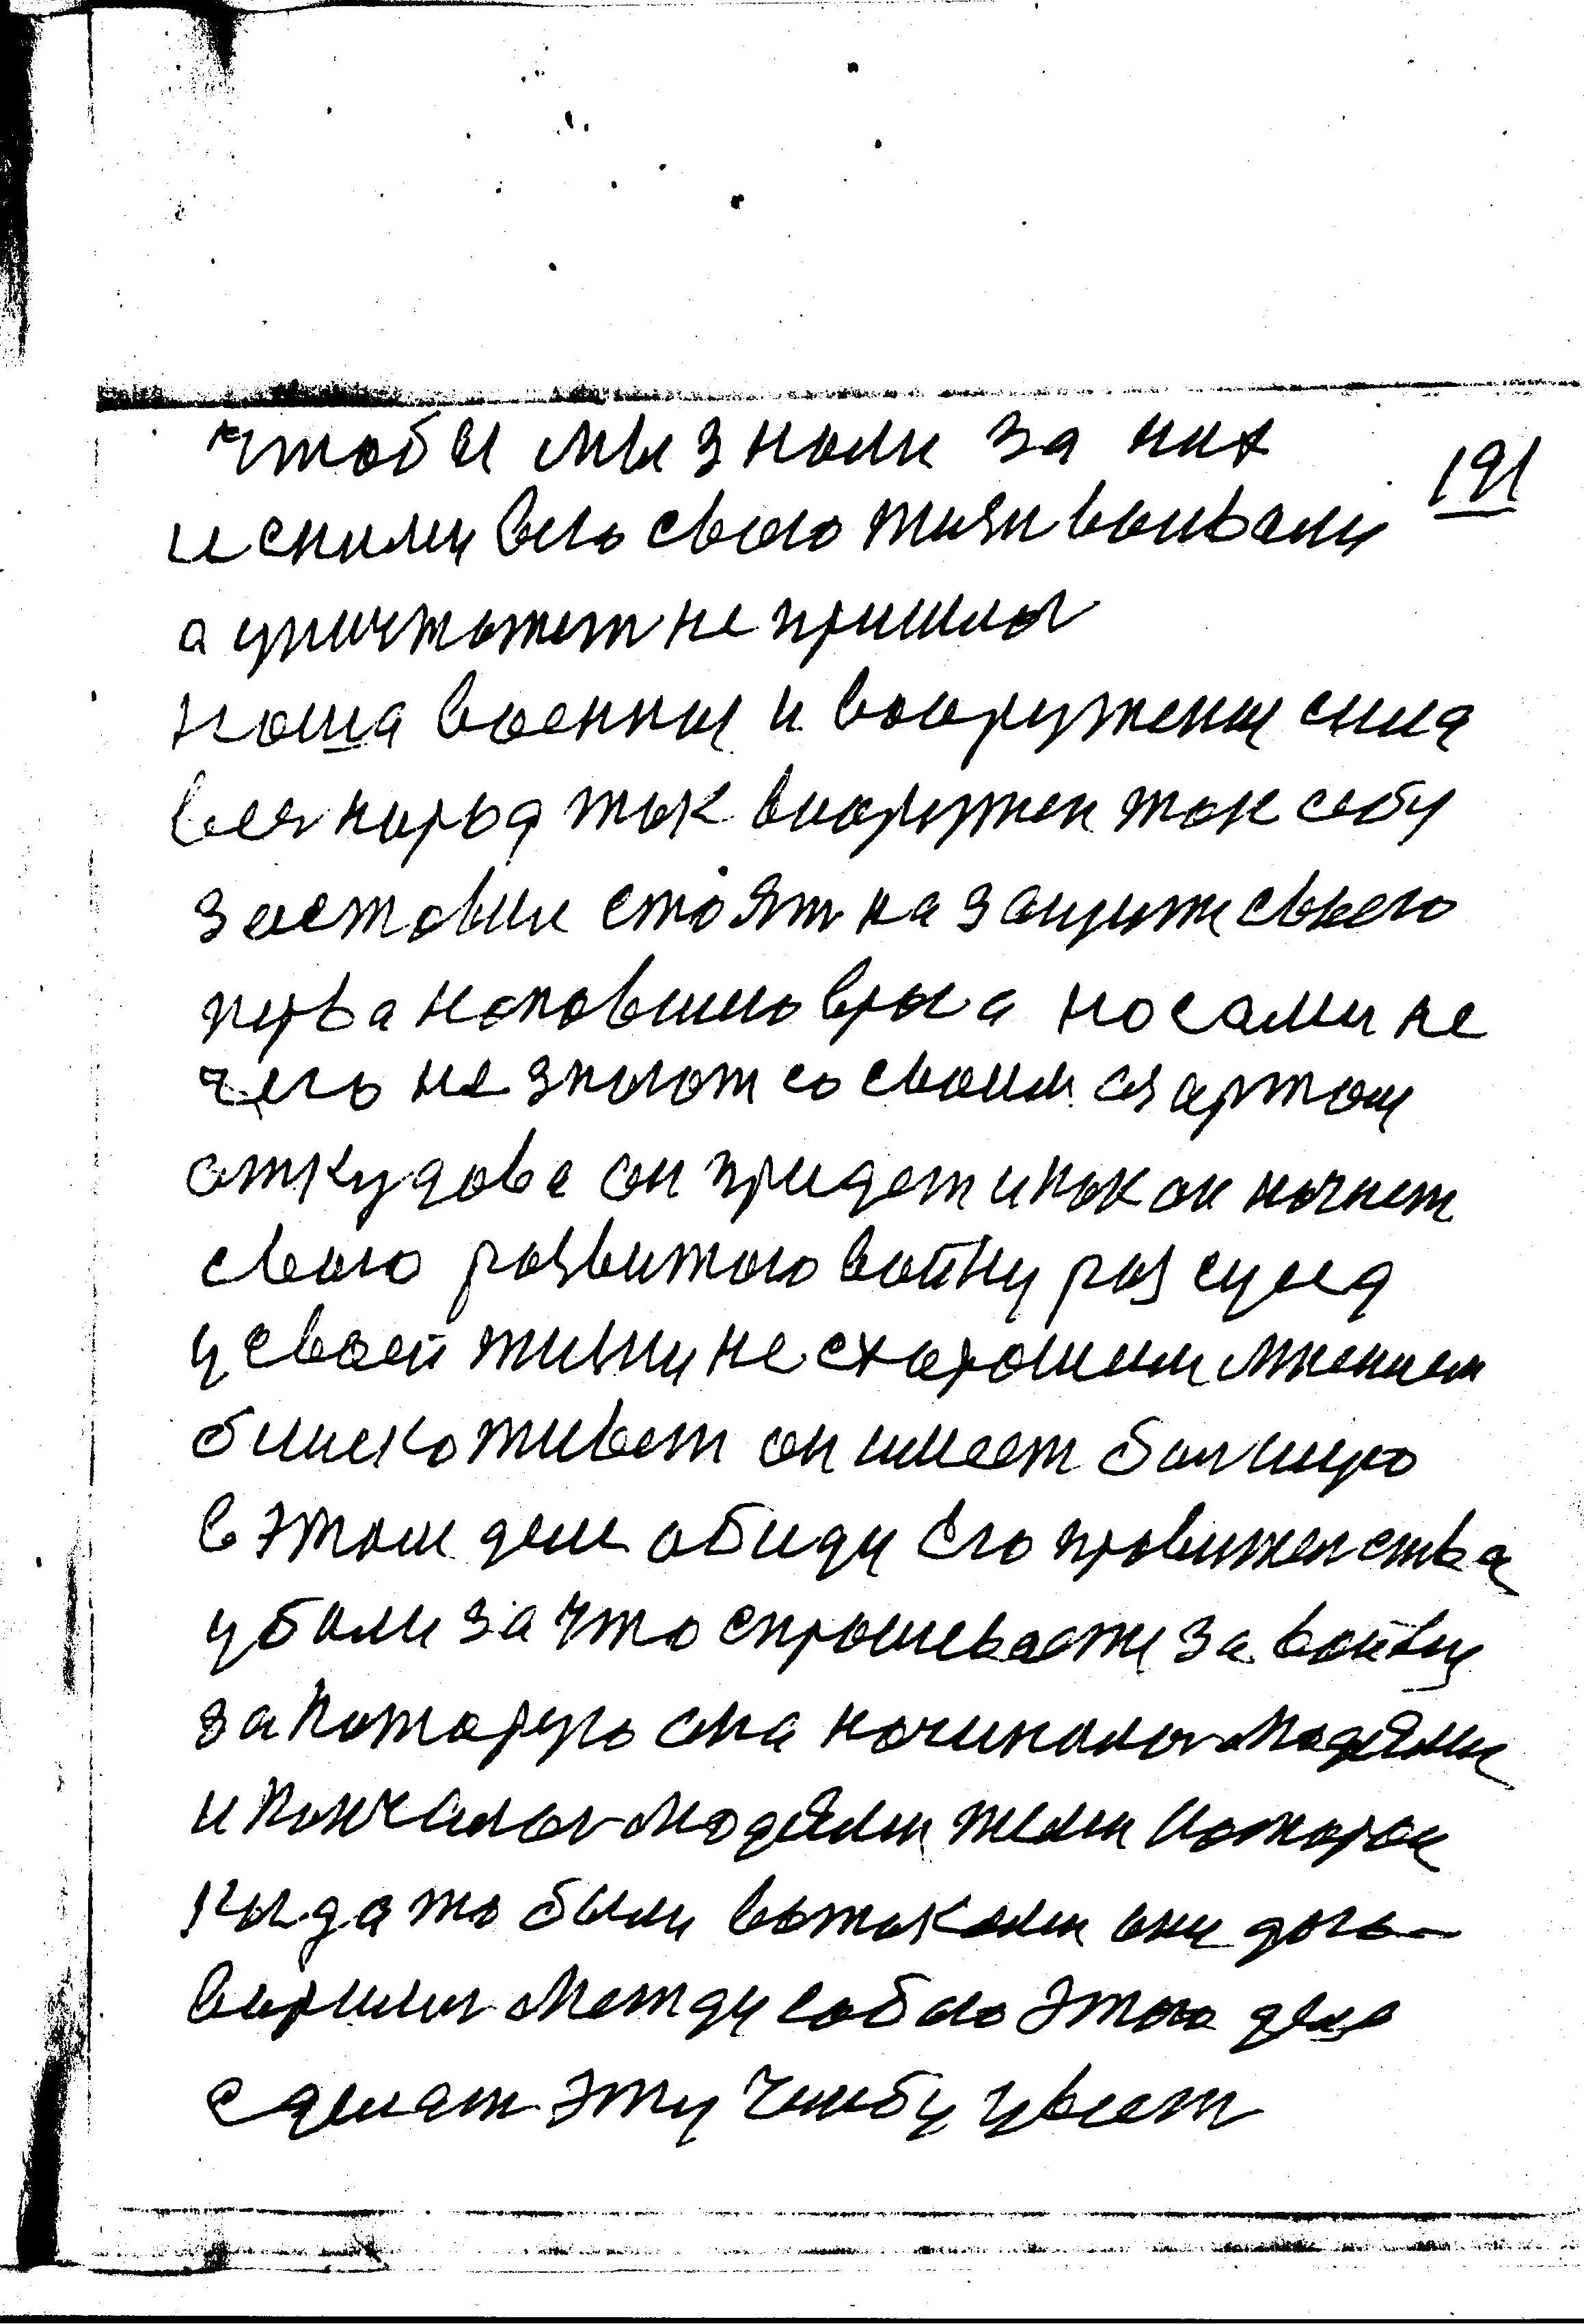 чтобы мы знали за них
191
и сними всю свою жизн воивали
а уничтожет не пришлос
наша военная и вооружены сила
веснарод так вооружен так себу
заставил стоят на защите своего
перва напавшего врага но сами не
чего не знают со своим азартом
откудова он придет и как он начнет
свою развитою войну рассуда
у своей жизни не схорошем мнением
близко живет он имеет большую
в этом деле обиду его правителства
убили за что спрошивается за войну
за которую она началас людями
и кончалас людями теми которои
когда то были вотаками они дого-
ворилис между собою этого дела
сделат эту